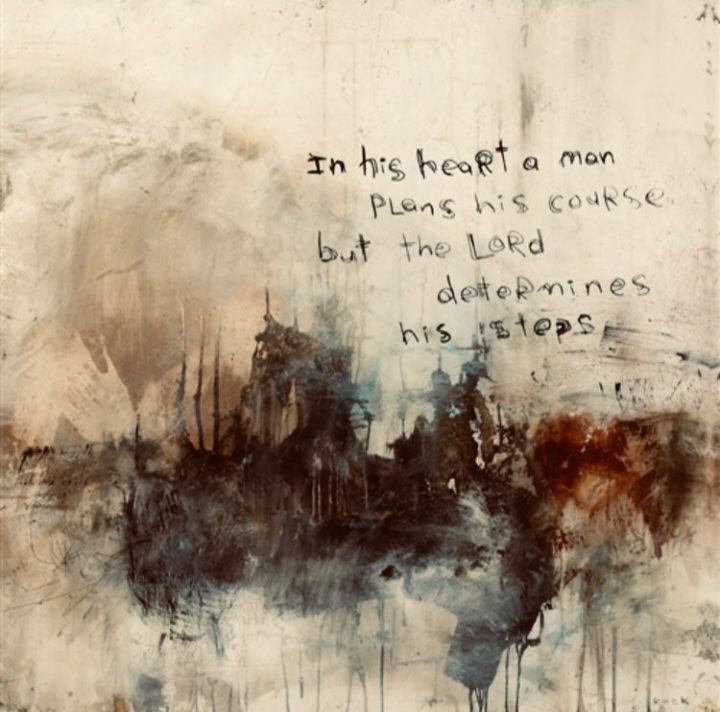 In his heaRt a man
PLans his couRse
but the LoRd
deteRmines
his steps